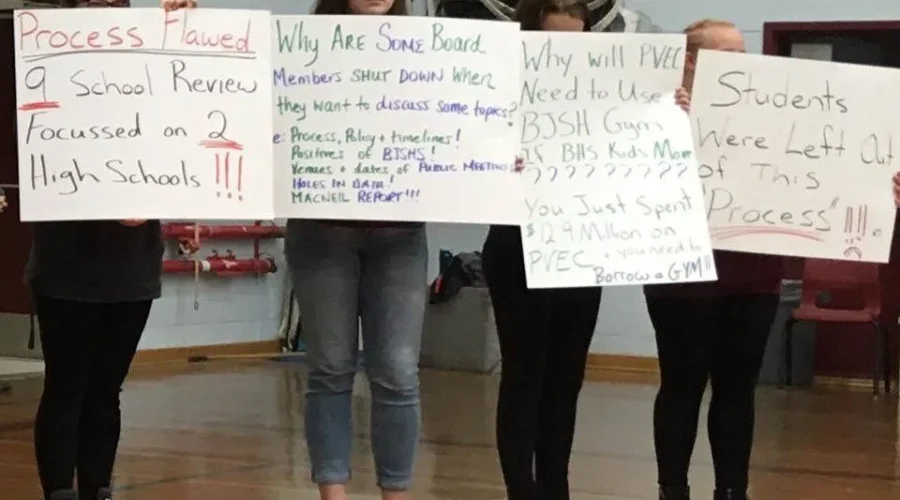 Process Flawed
9 School Review
Focussed on 2
High Schools !!!
Why ARE SOME Board
Members SHUT DOWN When
they want to discuss some topics?
e: Process, Policy + timelines!
Positives of BJSHS!
Venues + dates of PUBLIC MEETINGS
HOLES IN DATA!
MACNEIL REPORT!!!
Why will PVEC
Need to Use
BJSH Gym
If BHS Kids Move
?????????
You Just Spent
$12.9 Million on
PVEC + you need to
Borrow a GYM!!
Students
Were Left Out
of This
"Process" !!!!